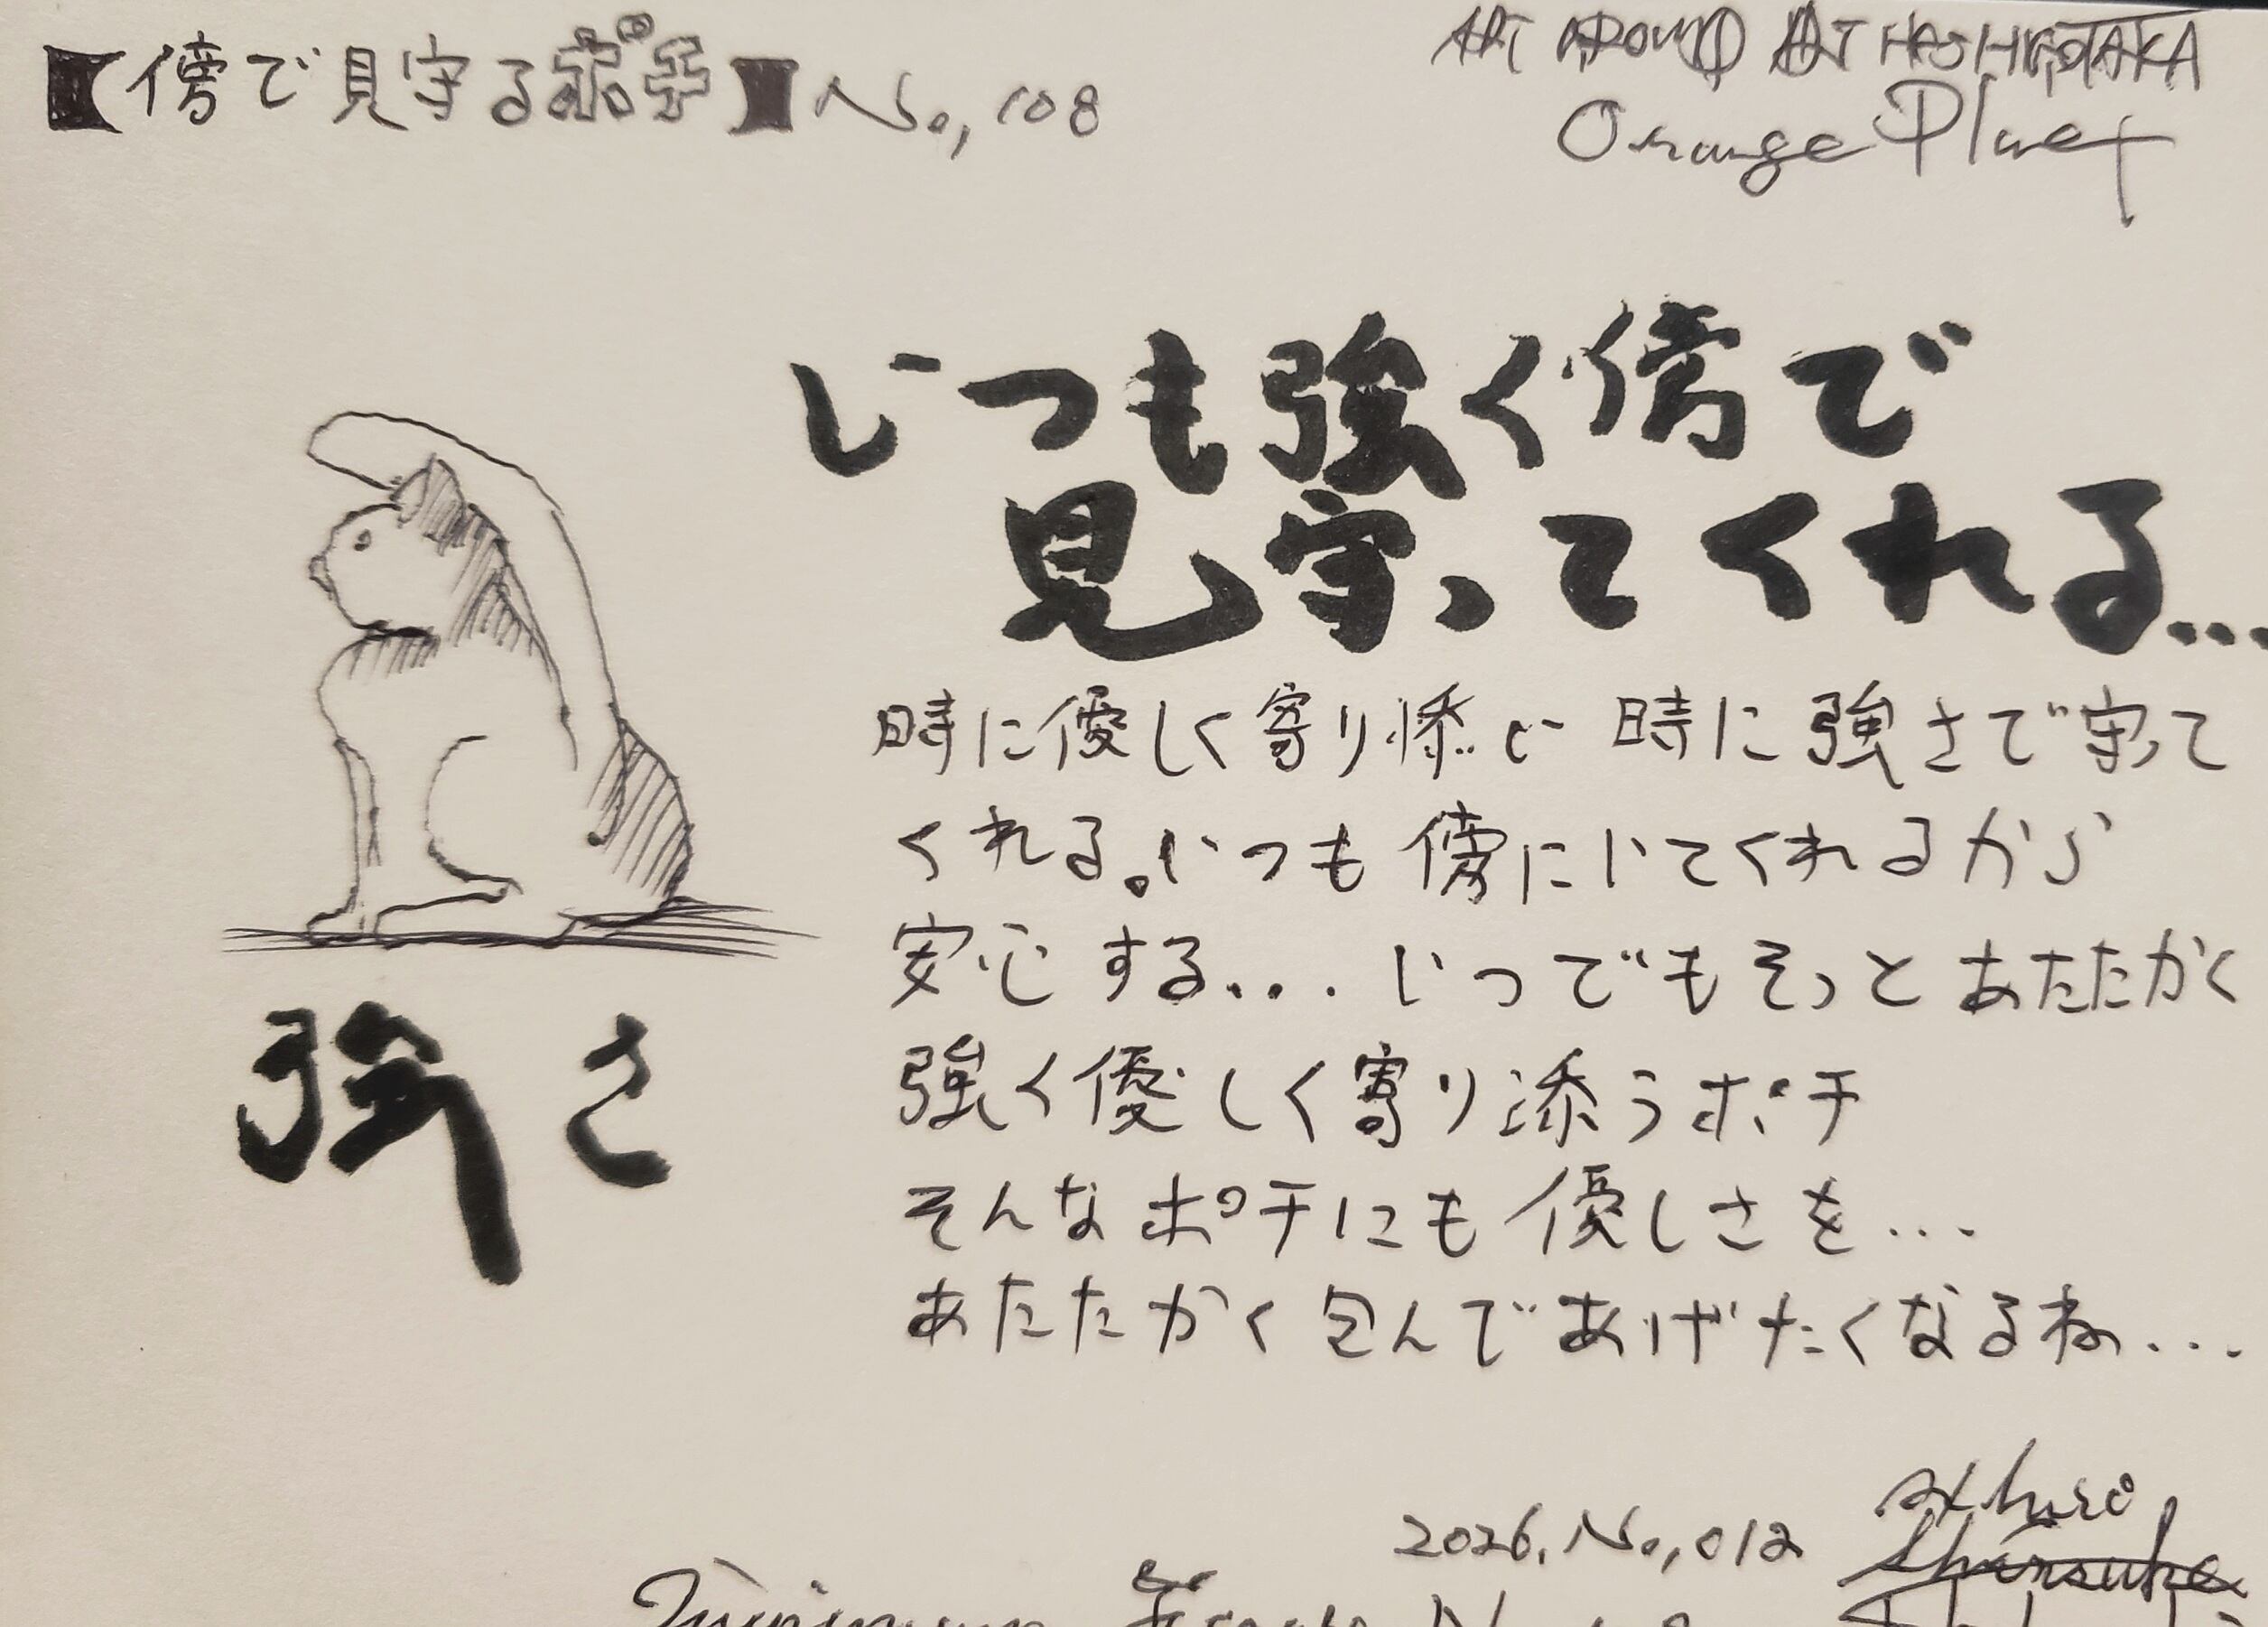 【傍で見守るポチ】No,108
ART AROUND ART HASHIGOTAKA
Orange Planet
いつも強く傍で
見守ってくれる...
時に優しく寄り添い 時に強さで守って
くれる。いつも傍にいてくれるから
安心する... いつでもそっとあたたかく
強く優しく寄り添うポチ
そんなポチにも優しさを...
あたたかく包んであげたくなるね...
強さ
2026.No,012